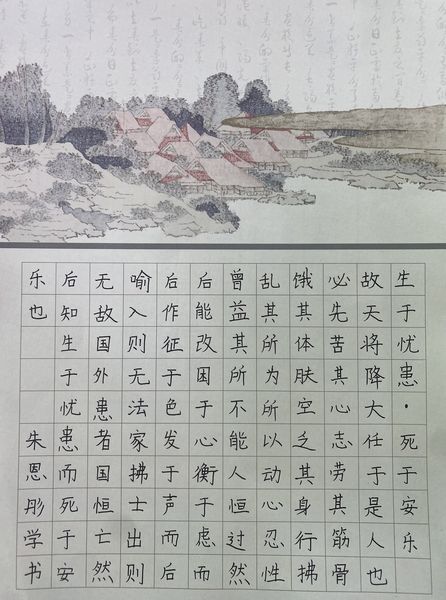 生于忧患·死于安乐
故天将降大任于是人也
必先苦其心志劳其筋骨
饿其体肤空乏其身行拂
乱其所为所以动心忍性
曾益其所不能人恒过然
后能改困于心衡于虑而
后作征于色发于声而后
喻入则无法家拂士出则
无故国外患者国恒亡然
后知生于忧患而死于安
乐也 朱恩彤学书